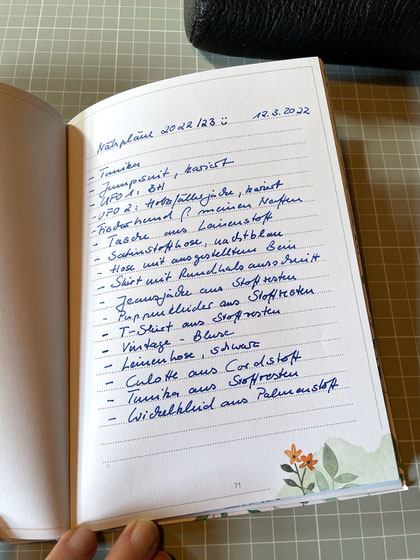 Nähpläne 2022/23 ☺ 12.3.2022
- Tunika
- Jumpsuit, kariert
- UFO 1: BH
- UFO 2: Holzfällerjacke, kariert
- Fischerhemd f. meinen Neffen
- Tasche aus Leinenstoff
- Satinstoffhose, nachtblau
- Hose mit ausgestelltem Bein
- Shirt mit Rundhalsausschnitt
- Jeansjacke aus Stoffresten
- Puppenkleider aus Stoffresten
- T-Shirt aus Stoffresten
- Vintage - Bluse
- Leinenhose, schwarz
- Culotte aus Cordstoff
- Tunika aus Stoffresten
- Wickelkleid aus Palmenstoff
71